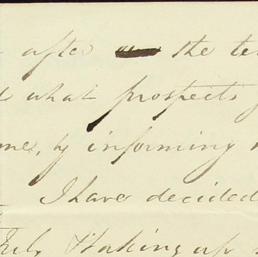 after the te
what prospects
me, by informing
I have decided
July. Making up